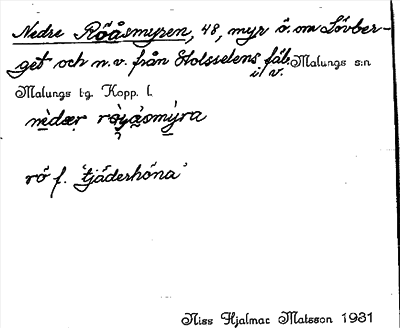 Nedre Röåsmyren, 48, myr ö. om Lövber-
get och n.v. från Stolsselens fäb. Malungs s:n
i V.
Malungs tg. Kopp. l.
nèdær smýra
rö f. 'tjäderhöna'
Niss Hjalmar Matsson 1931